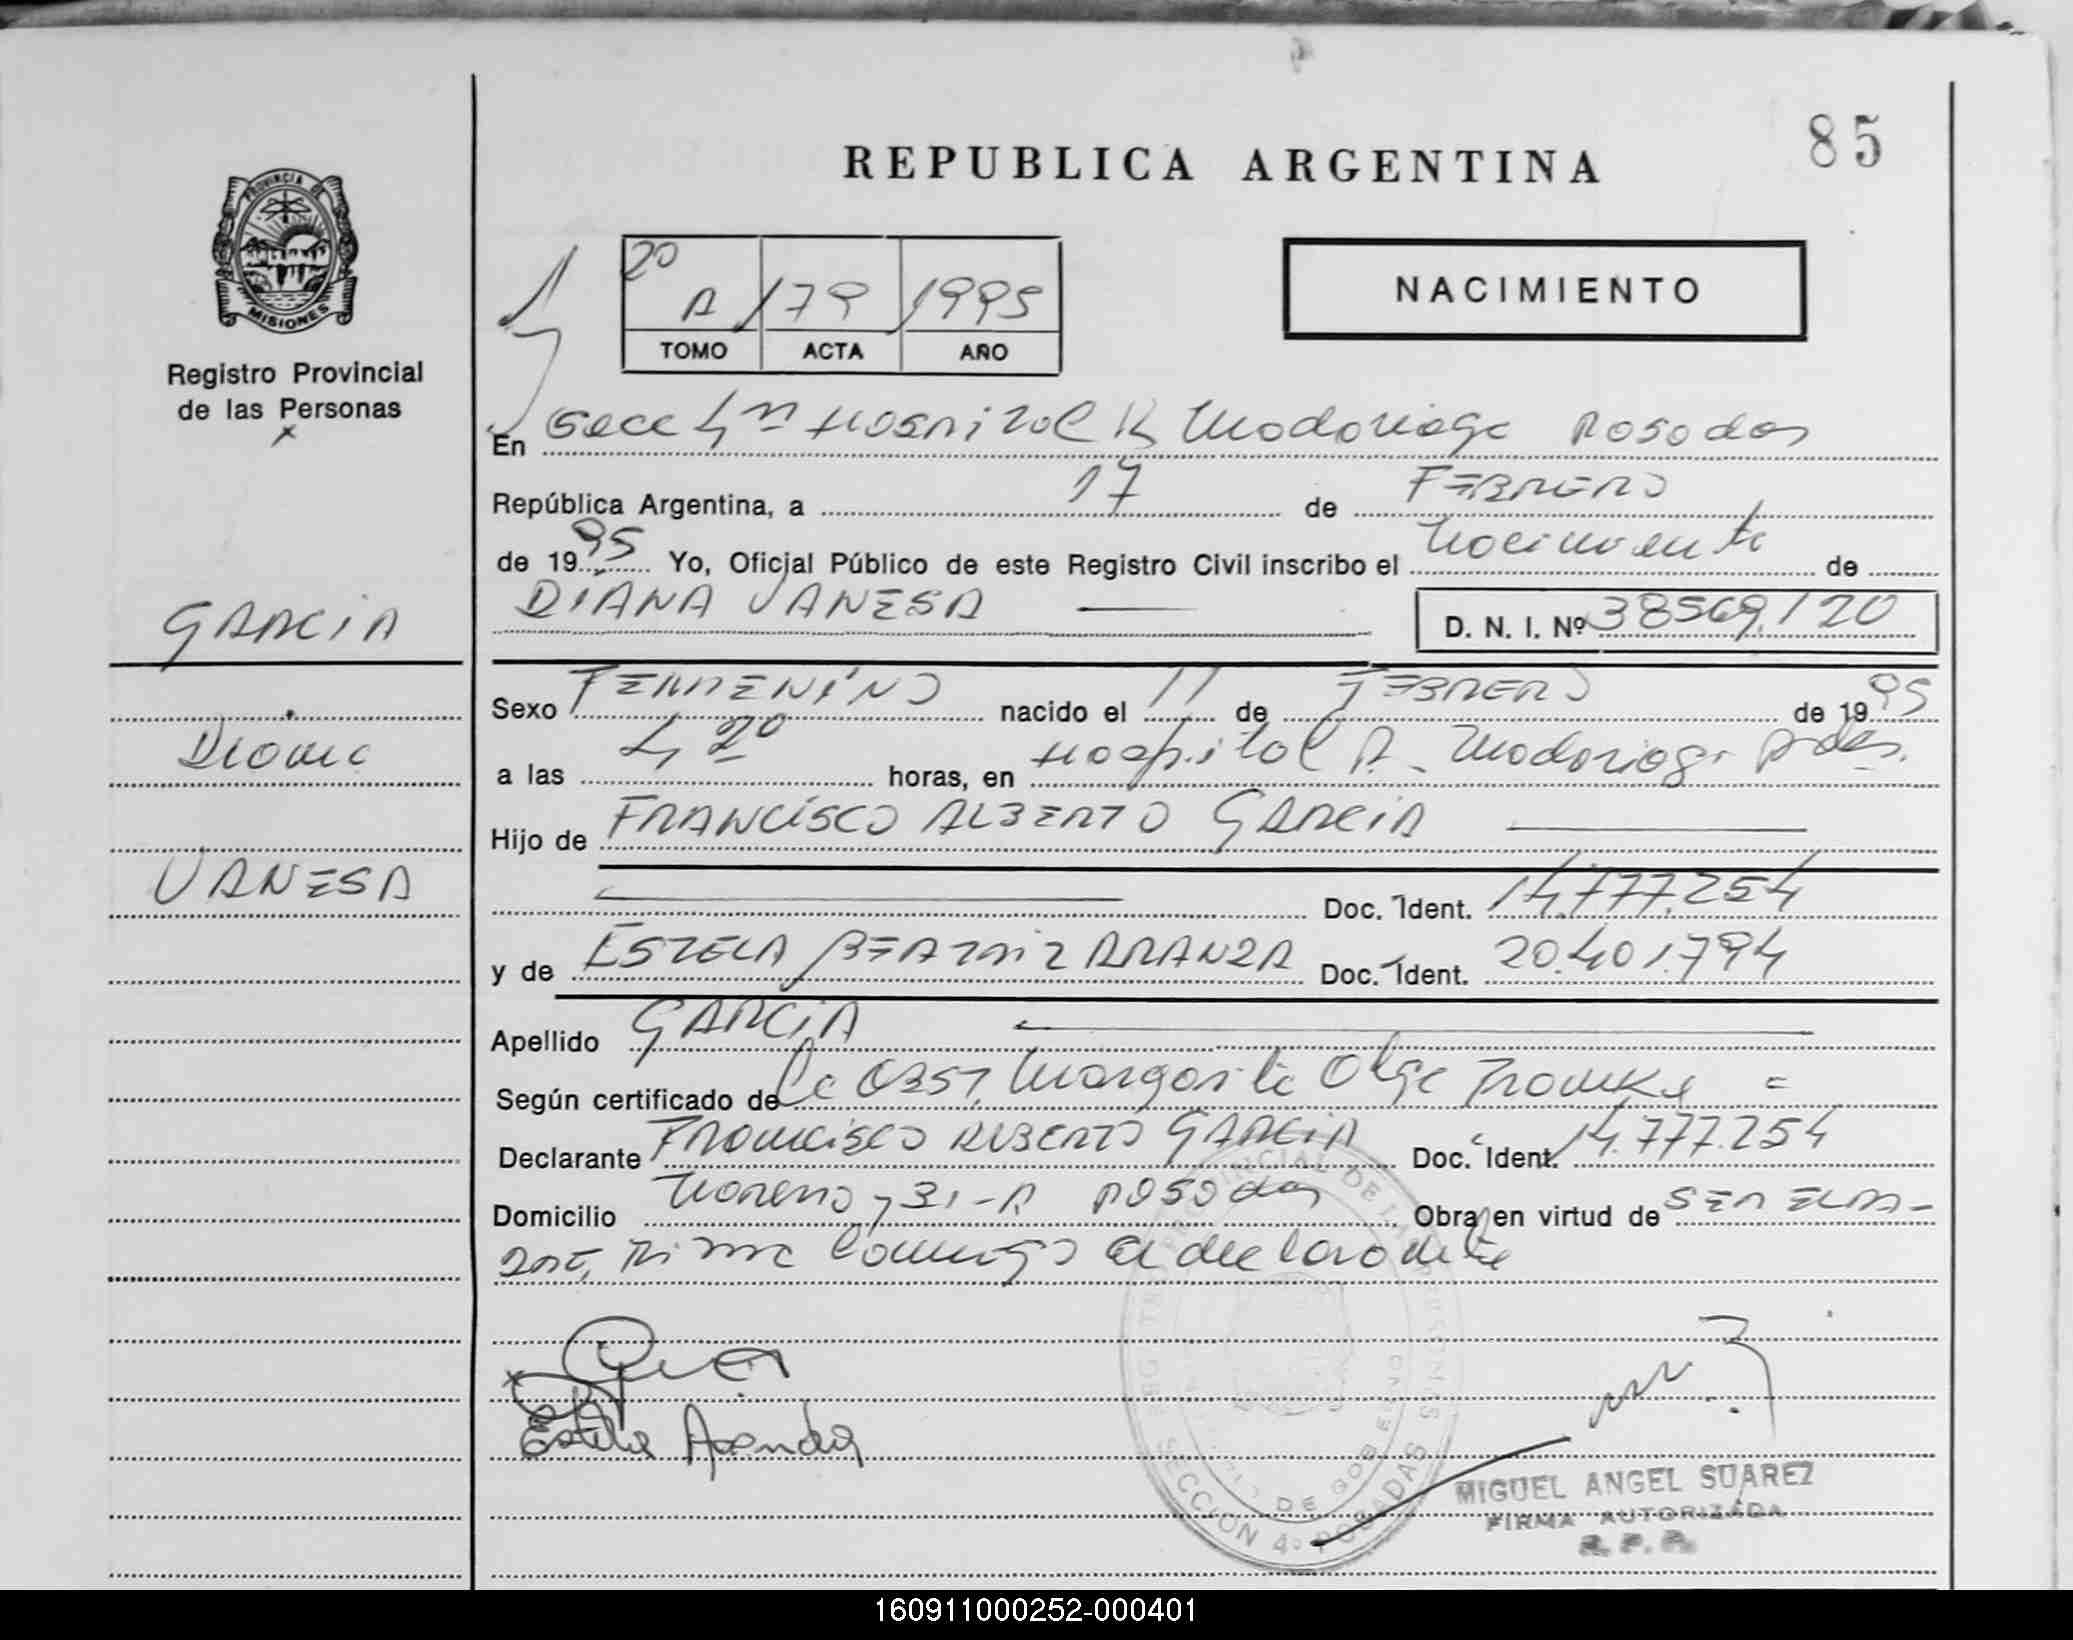 85
REPUBLICA ARGENTINA
PROVINCIA DE
MISIONES
Registro Provincial
de las Personas
2º A 179 1995
TOMO ACTA AÑO
NACIMIENTO
En Secc 4ta Hospital R Madariaga Posadas
República Argentina, a 17 de FEBRERO
de 1995 Yo, Oficial Público de este Registro Civil inscribo el Nacimiento de
DIANA VANESA D. N. I. Nº 38569.120
GARCIA
Diana
VANESA
Sexo FEMENINO nacido el 11 de FEBRERO de 1995
a las 4 20 horas, en Hospital R. Madariaga Pdas.
Hijo de FRANCISCO ALBERTO GARCIA
Doc. Ident. 14.777.254
y de ESTELA BEATRIZ ARANDA Doc. Ident. 20.401.794
Apellido GARCIA
Según certificado de la OBST, Margarita Olga
Declarante FRANCISCO ALBERTO GARCIA Doc. Ident. 14.777.254
Domicilio Moreno 731-A POSADAS Obra en virtud de SER EL PA-
DRE, Firma Conmigo el declarante
Estela Aranda
REGISTRO PROVINCIAL DE LAS PERSONAS
SECCION 4º POSADAS
DE GOBIERNO
MIGUEL ANGEL SUAREZ
FIRMA AUTORIZADA
R. P. P.
160911000252-000401